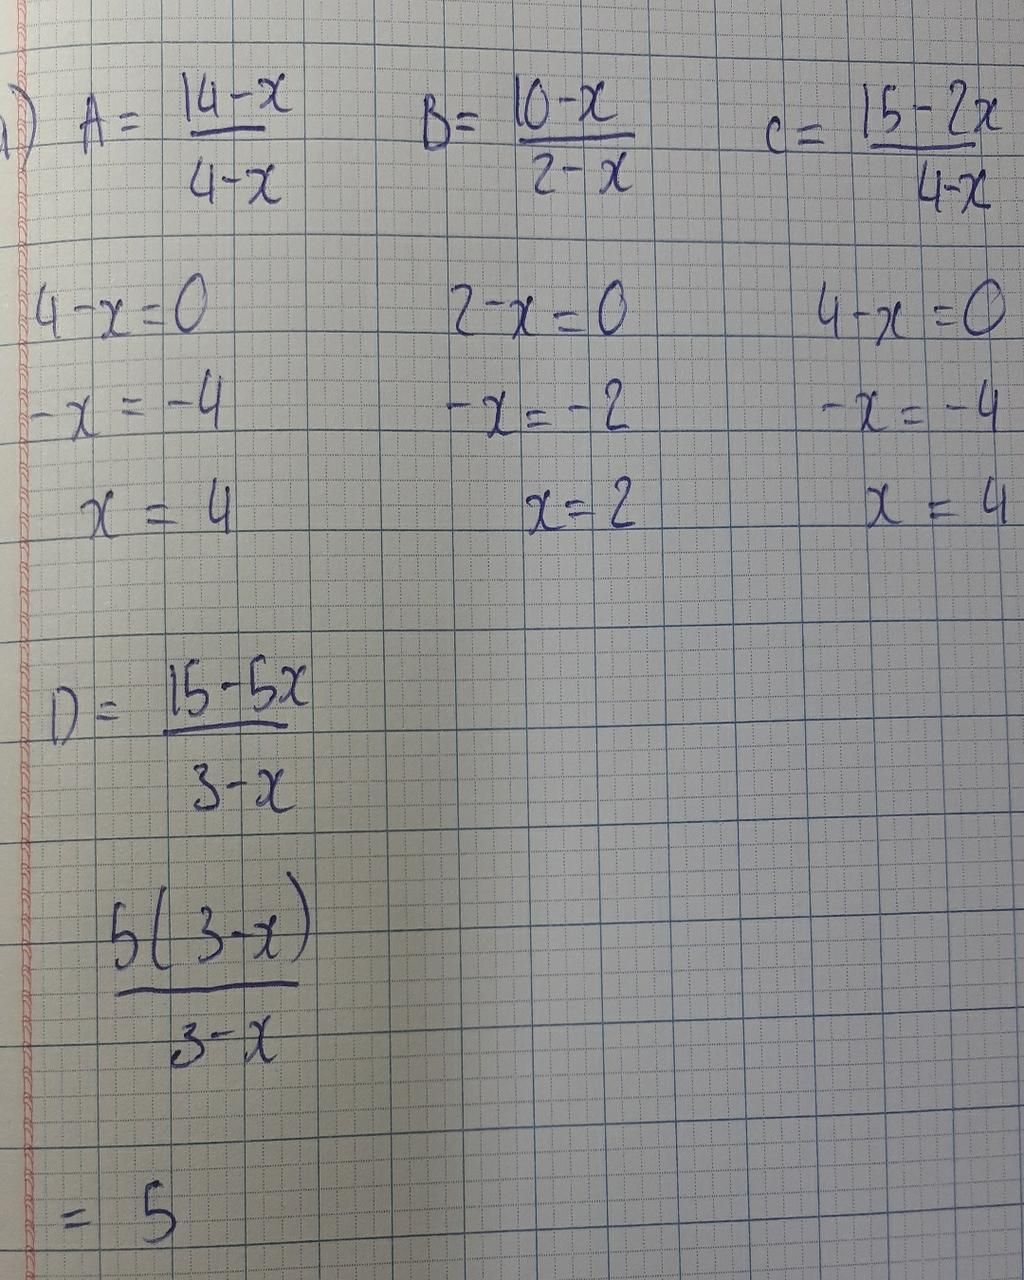 A = 14-x / 4-x B = 10-x / 2-x C = 15-2x / 4-x
4-x=0 2-x=0 4-x=0
-x = -4 -x = -2 -x = -4
x = 4 x = 2 x = 4
D = 15-5x / 3-x
5(3-x) / 3-x
= 5